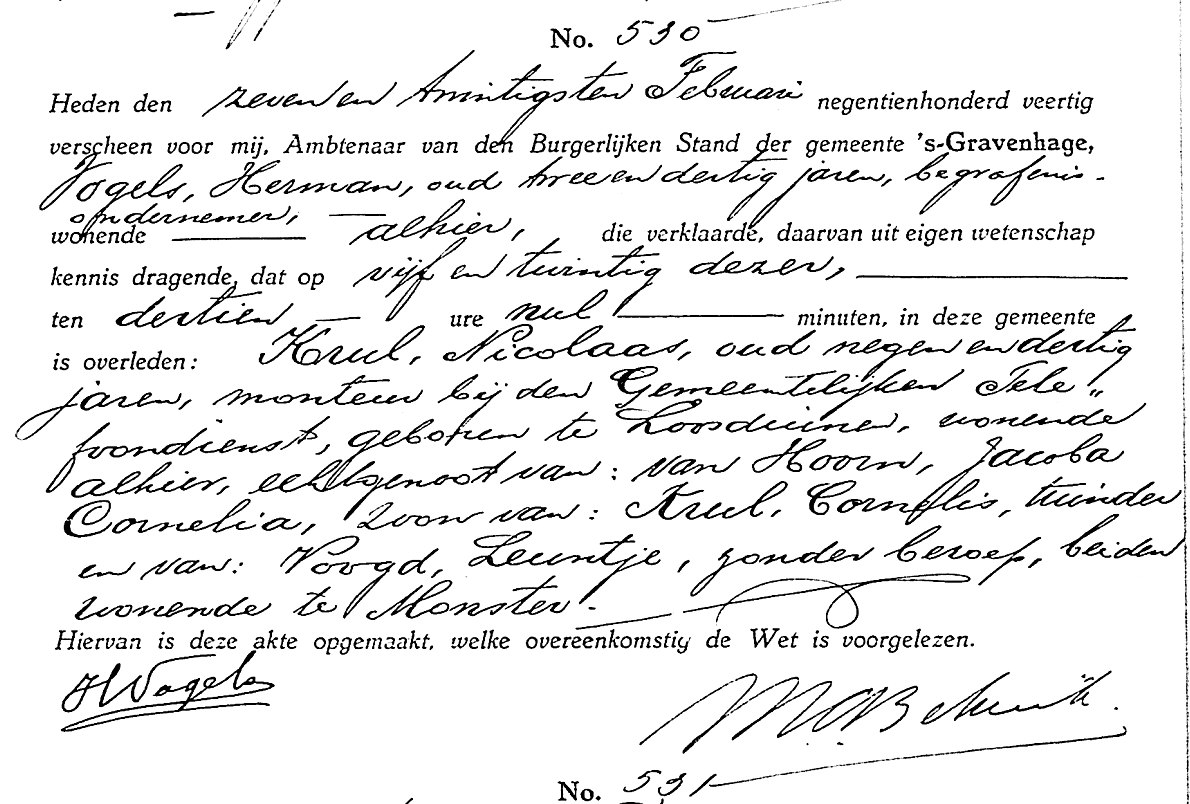 No. 530
Heden den zeven en twintigsten Februari negentienhonderd veertig
verscheen voor mij, Ambtenaar van den Burgerlijken Stand der gemeente 's-Gravenhage,
Vogels, Herman, oud twee en dertig jaren, begrafenis-
ondernemer,
wonende alhier, die verklaarde, daarvan uit eigen wetenschap
kennis dragende, dat op vijf en twintig dezer,
ten dertien ure nul minuten, in deze gemeente
is overleden: Krul, Nicolaas, oud negen en dertig
jaren, monteur bij den Gemeentelijken Tele„
foondienst, geboren te Loosduinen, wonende
alhier, echtgenoot van: van Hoorn, Jacoba
Cornelia, zoon van: Krul, Cornelis, tuinder
en van: Voogd, Leuntje, zonder beroep, beiden
wonende te Monster.
Hiervan is deze akte opgemaakt, welke overeenkomstig de Wet is voorgelezen.
HVogels
No. 531